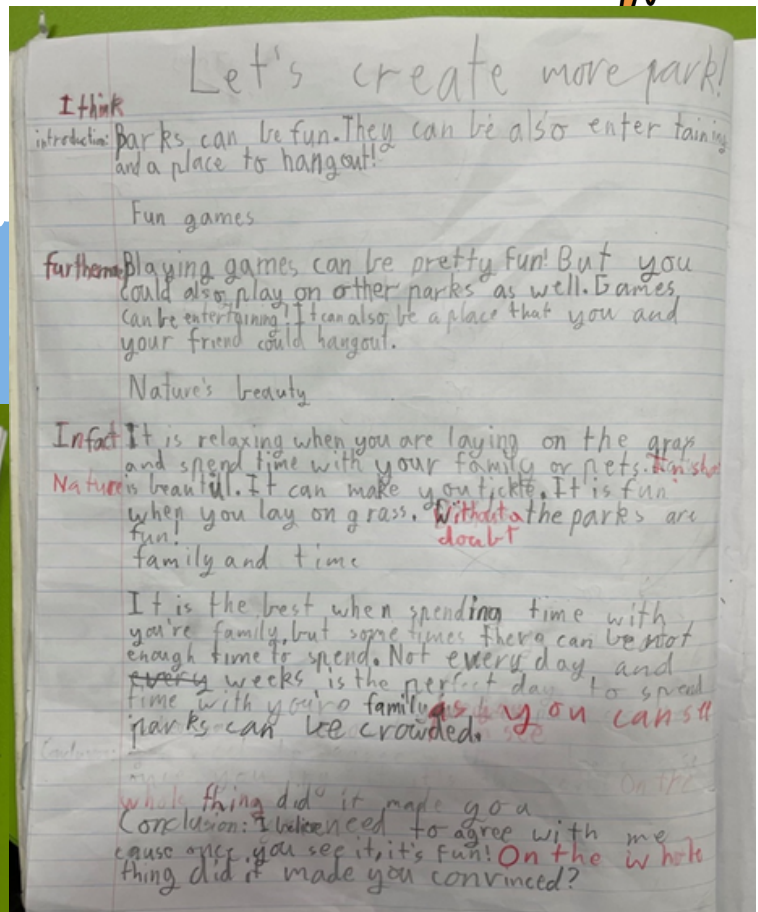 Let's create more park!
I think
introduction: Parks can be fun. They can be also enter taining
and a place to hangout!
Fun games
furthermore Playing games can be pretty fun! But you
could also play on other parks as well. Games
can be entertaining! It can also be a place that you and
your friend could hangout.
Nature's beauty
Infact It is relaxing when you are laying on the grass
and spend time with your family or pets.
Nature is beautiful. It can make you tickle. It is fun
when you lay on grass. Without a the parks are
fun! doubt
family and time
It is the best when spending time with
you're family, but some times there can be not
enough time to spend. Not every day and
every weeks is the perfect day to spend
time with you're family as you can see
parks can be crowded.
On the
whole thing did it made you
Conclusion: I believe need to agree with me
cause once you see it, it's fun! On the whole
thing did it made you convinced?